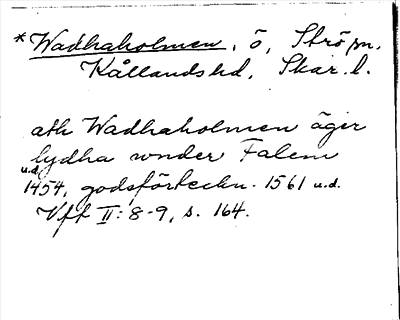 *Wadhaholmen, ö, Strö sn.
Kållands hd, Skar. l.
ath Wadhaholmen äger
lydha wnder Falem
u.d.
1454, godsförteckn. 1561 u.d.
Vff II: 8-9, s. 164.